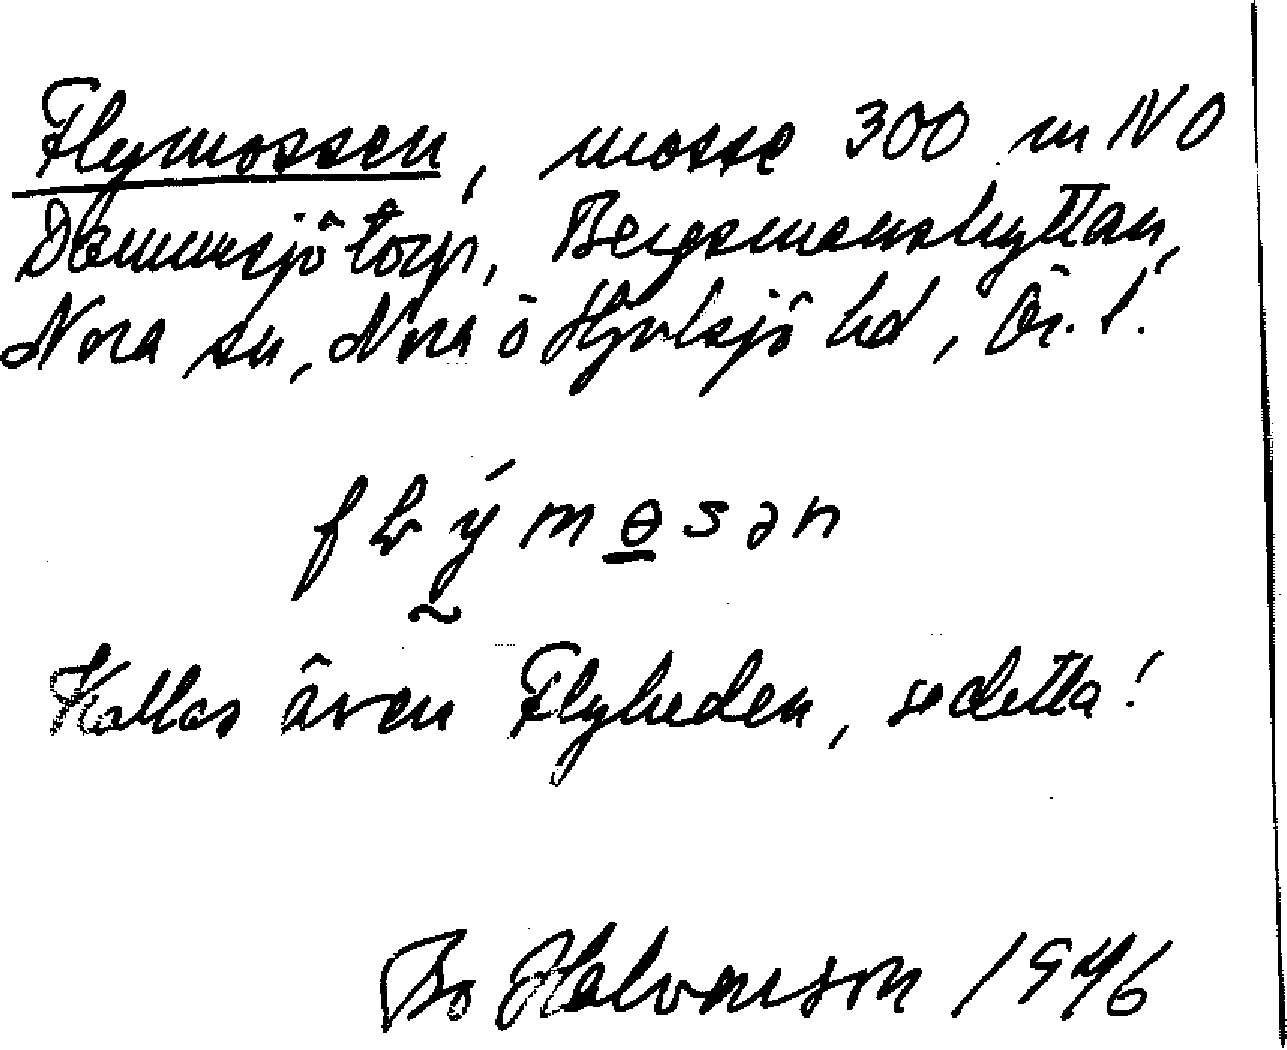 Flymossen, mosse 300 m NO
Dammsjötorp, Bergsmanshyttan,
Nora sn, Nora o Hjulsjö hd, Ör. l.
mɵsən
Kallas även Flyheden, se detta!
Bo Halvarson 1946